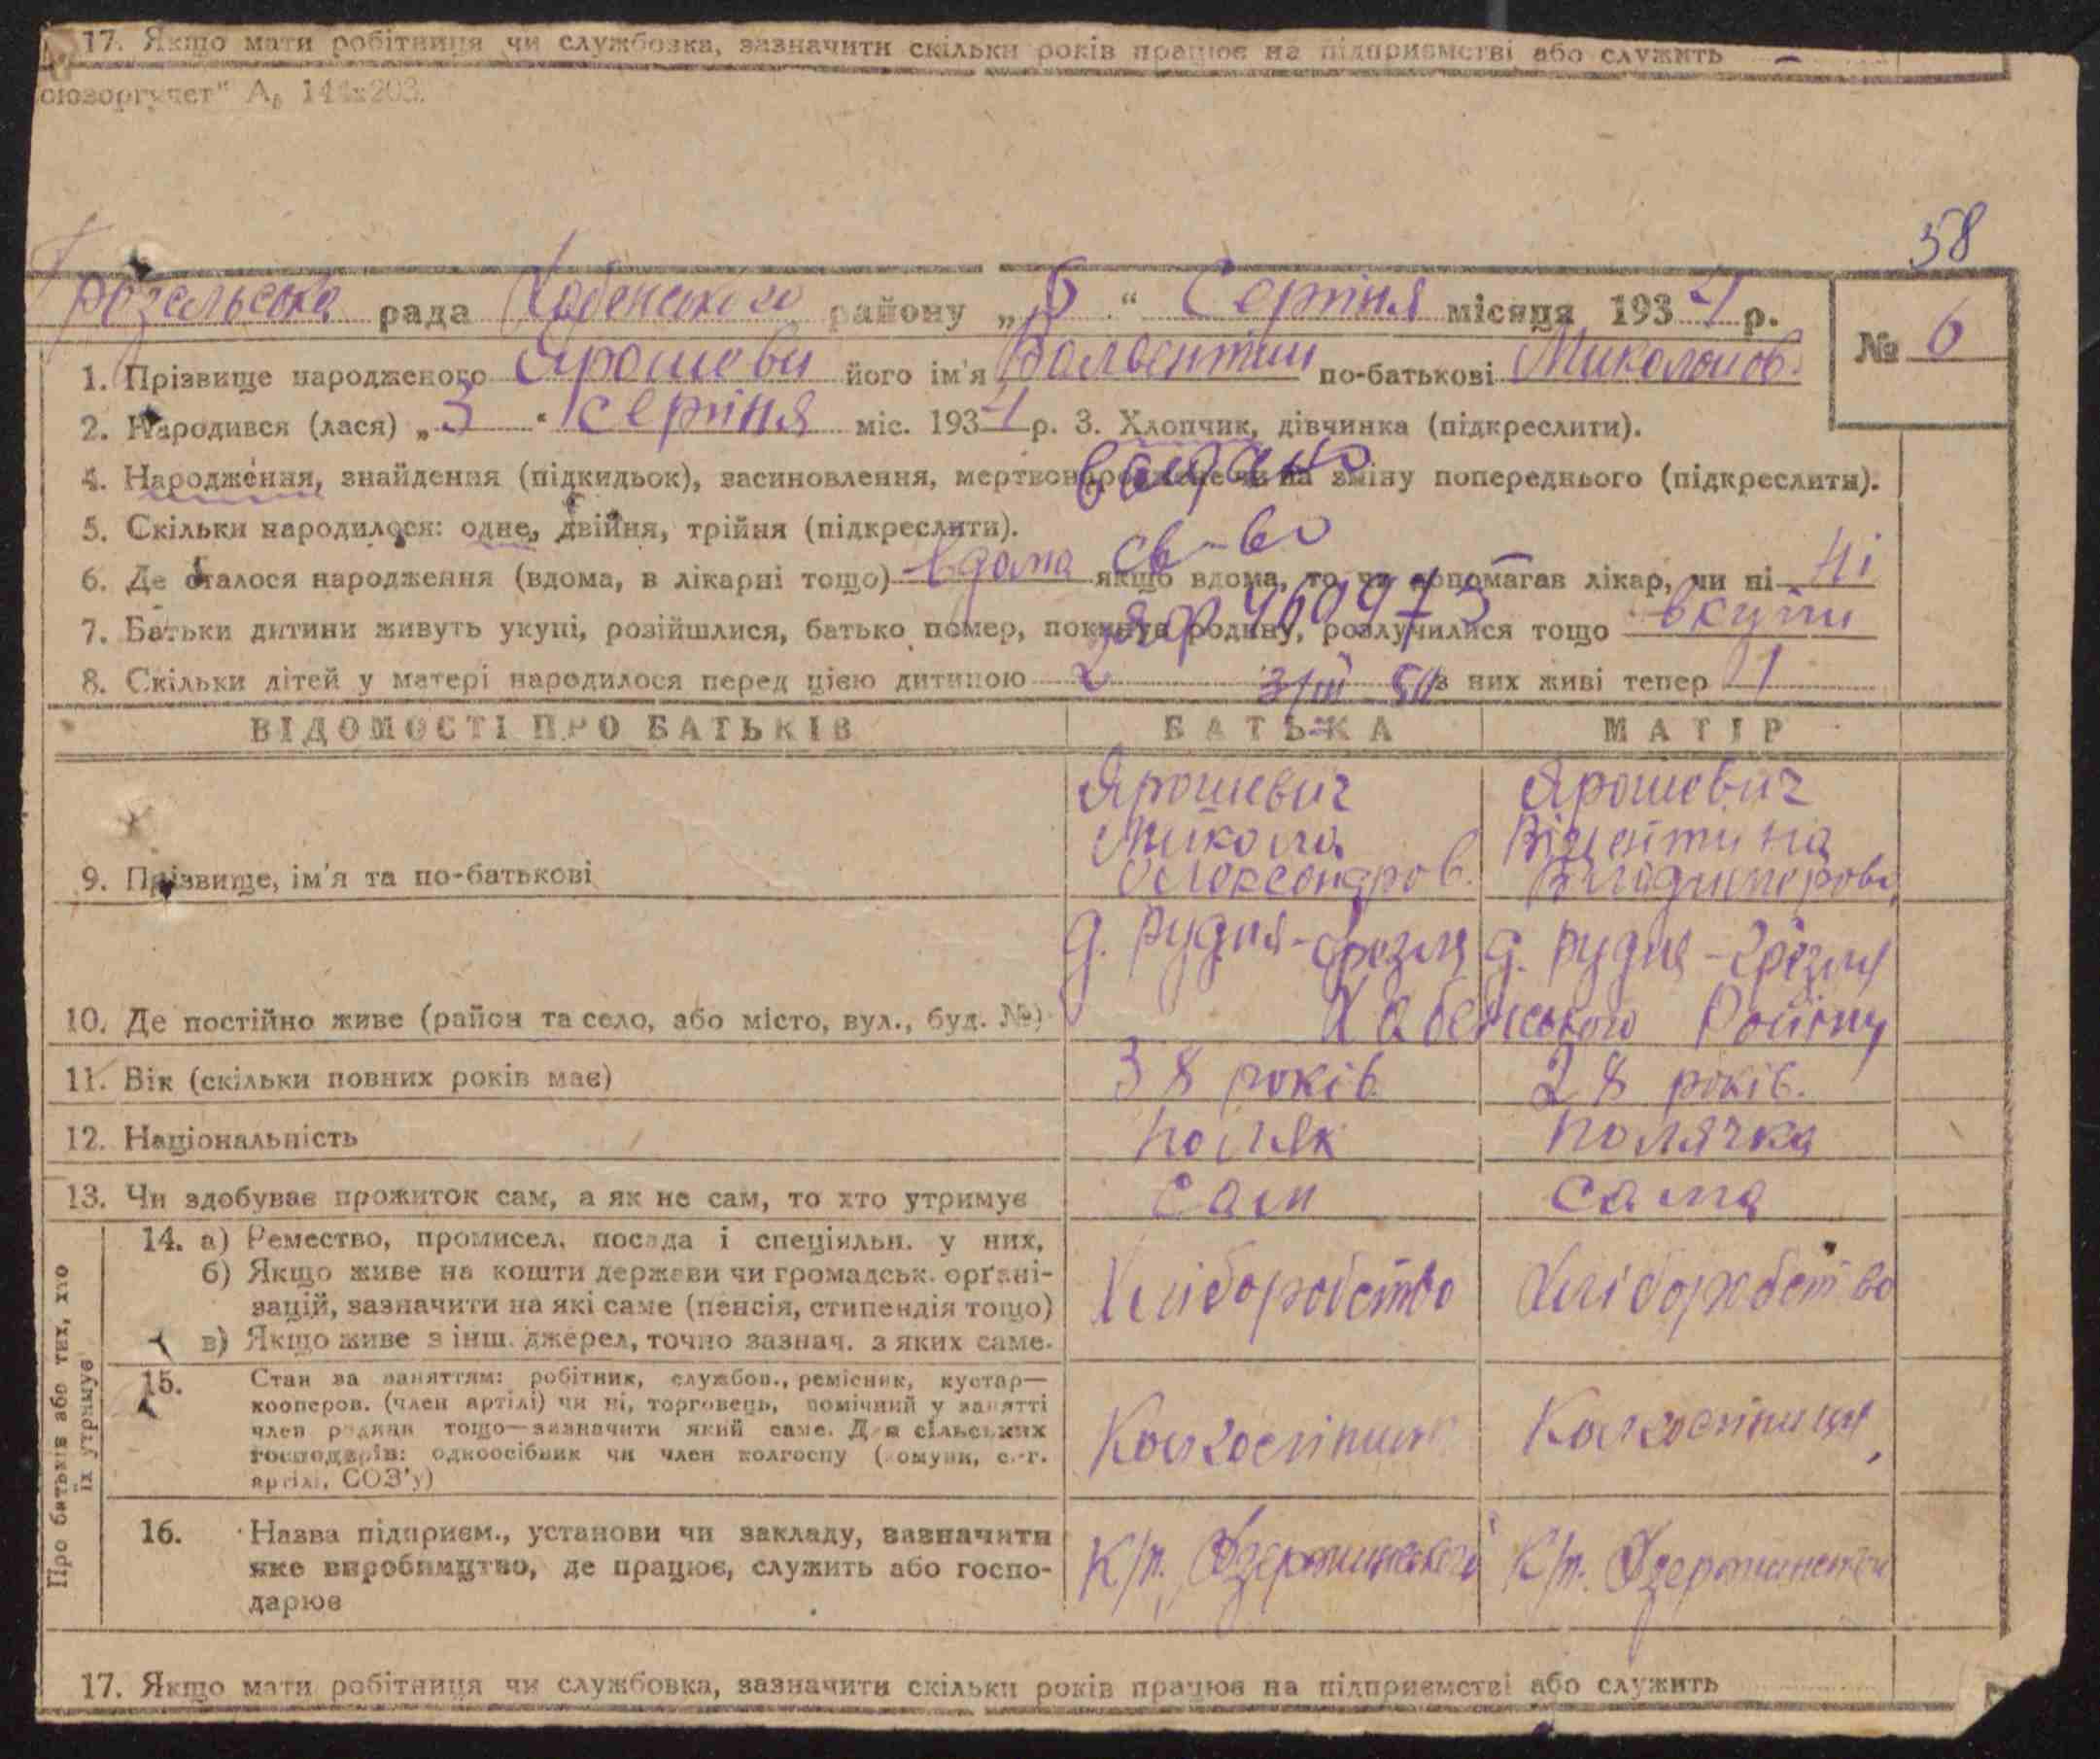 17. Якщо мати робітниця чи службовка, зазначити скільки років працює на підприємстві або служить –
оюзоргучет" А₆ 144х203.
58
рада Хабенського району „6“ Серпня місяця 1934 р.
№ 6
1. Прізвище народженого його ім'я по-батькові Миколайов.
2. Народився (лася) „3“ серпня міс. 1934 р. 3. Хлопчик, дівчинка (підкреслити).
4. Народження, знайдення (підкидьок), засиновлення, мертвонароджене чи на зміну попереднього (підкреслити).
видано
5. Скільки народилося: одне, двійня, трійня (підкреслити).
св-во
6. Де сталося народження (вдома, в лікарні тощо) вдома якщо вдома, то чи допомагав лікар, чи ні ні
7. Батьки дитини живуть укупі, розійшлися, батько помер, покинув родину, розлучилися тощо вкупи
8. Скільки дітей у матері народилося перед цією дитиною 2 з них живі тепер 1
ВІДОМОСТІ ПРО БАТЬКІВ БАТЬКА МАТІР
Ярошевич Ярошевич
Микола
9. Прізвище, ім'я та по-батькові Олександров. Владимеровн.
д. Рудня- д. Рудня-
10. Де постійно живе (район та село, або місто, вул., буд. №) Хабенського Району
11. Вік (скільки повних років має) 38 років 28 років.
12. Національність поляк полячка
13. Чи здобуває прожиток сам, а як не сам, то хто утримує сам сама
Про батьків або тих, хто їх утримує
14. а) Ремество, промисел, посада і спеціяльн. у них,
б) Якщо живе на кошти держави чи громадськ. орґані-
зацій, зазначити на які саме (пенсія, стипендія тощо) Хліборобство Хліборобство
в) Якщо живе з інш. джерел, точно зазнач. з яких саме.
15. Стан за заняттям: робітник, службов., ремісник, кустар—
кооперов. (член артілі) чи ні, торговець, помічний у занятті
член родини тощо—зазначити який саме. Для сільських
господарів: одноосібник чи член колгоспу (комуни, с.-г. Колгоспник Колгоспниця
артілі, СОЗ'у)
16. Назва підприєм., установи чи закладу, зазначити
яке виробництво, де працює, служить або госпо- К/г. К/г.
дарює
17. Якщо мати робітниця чи службовка, зазначити скільки років працює на підприємстві або служить